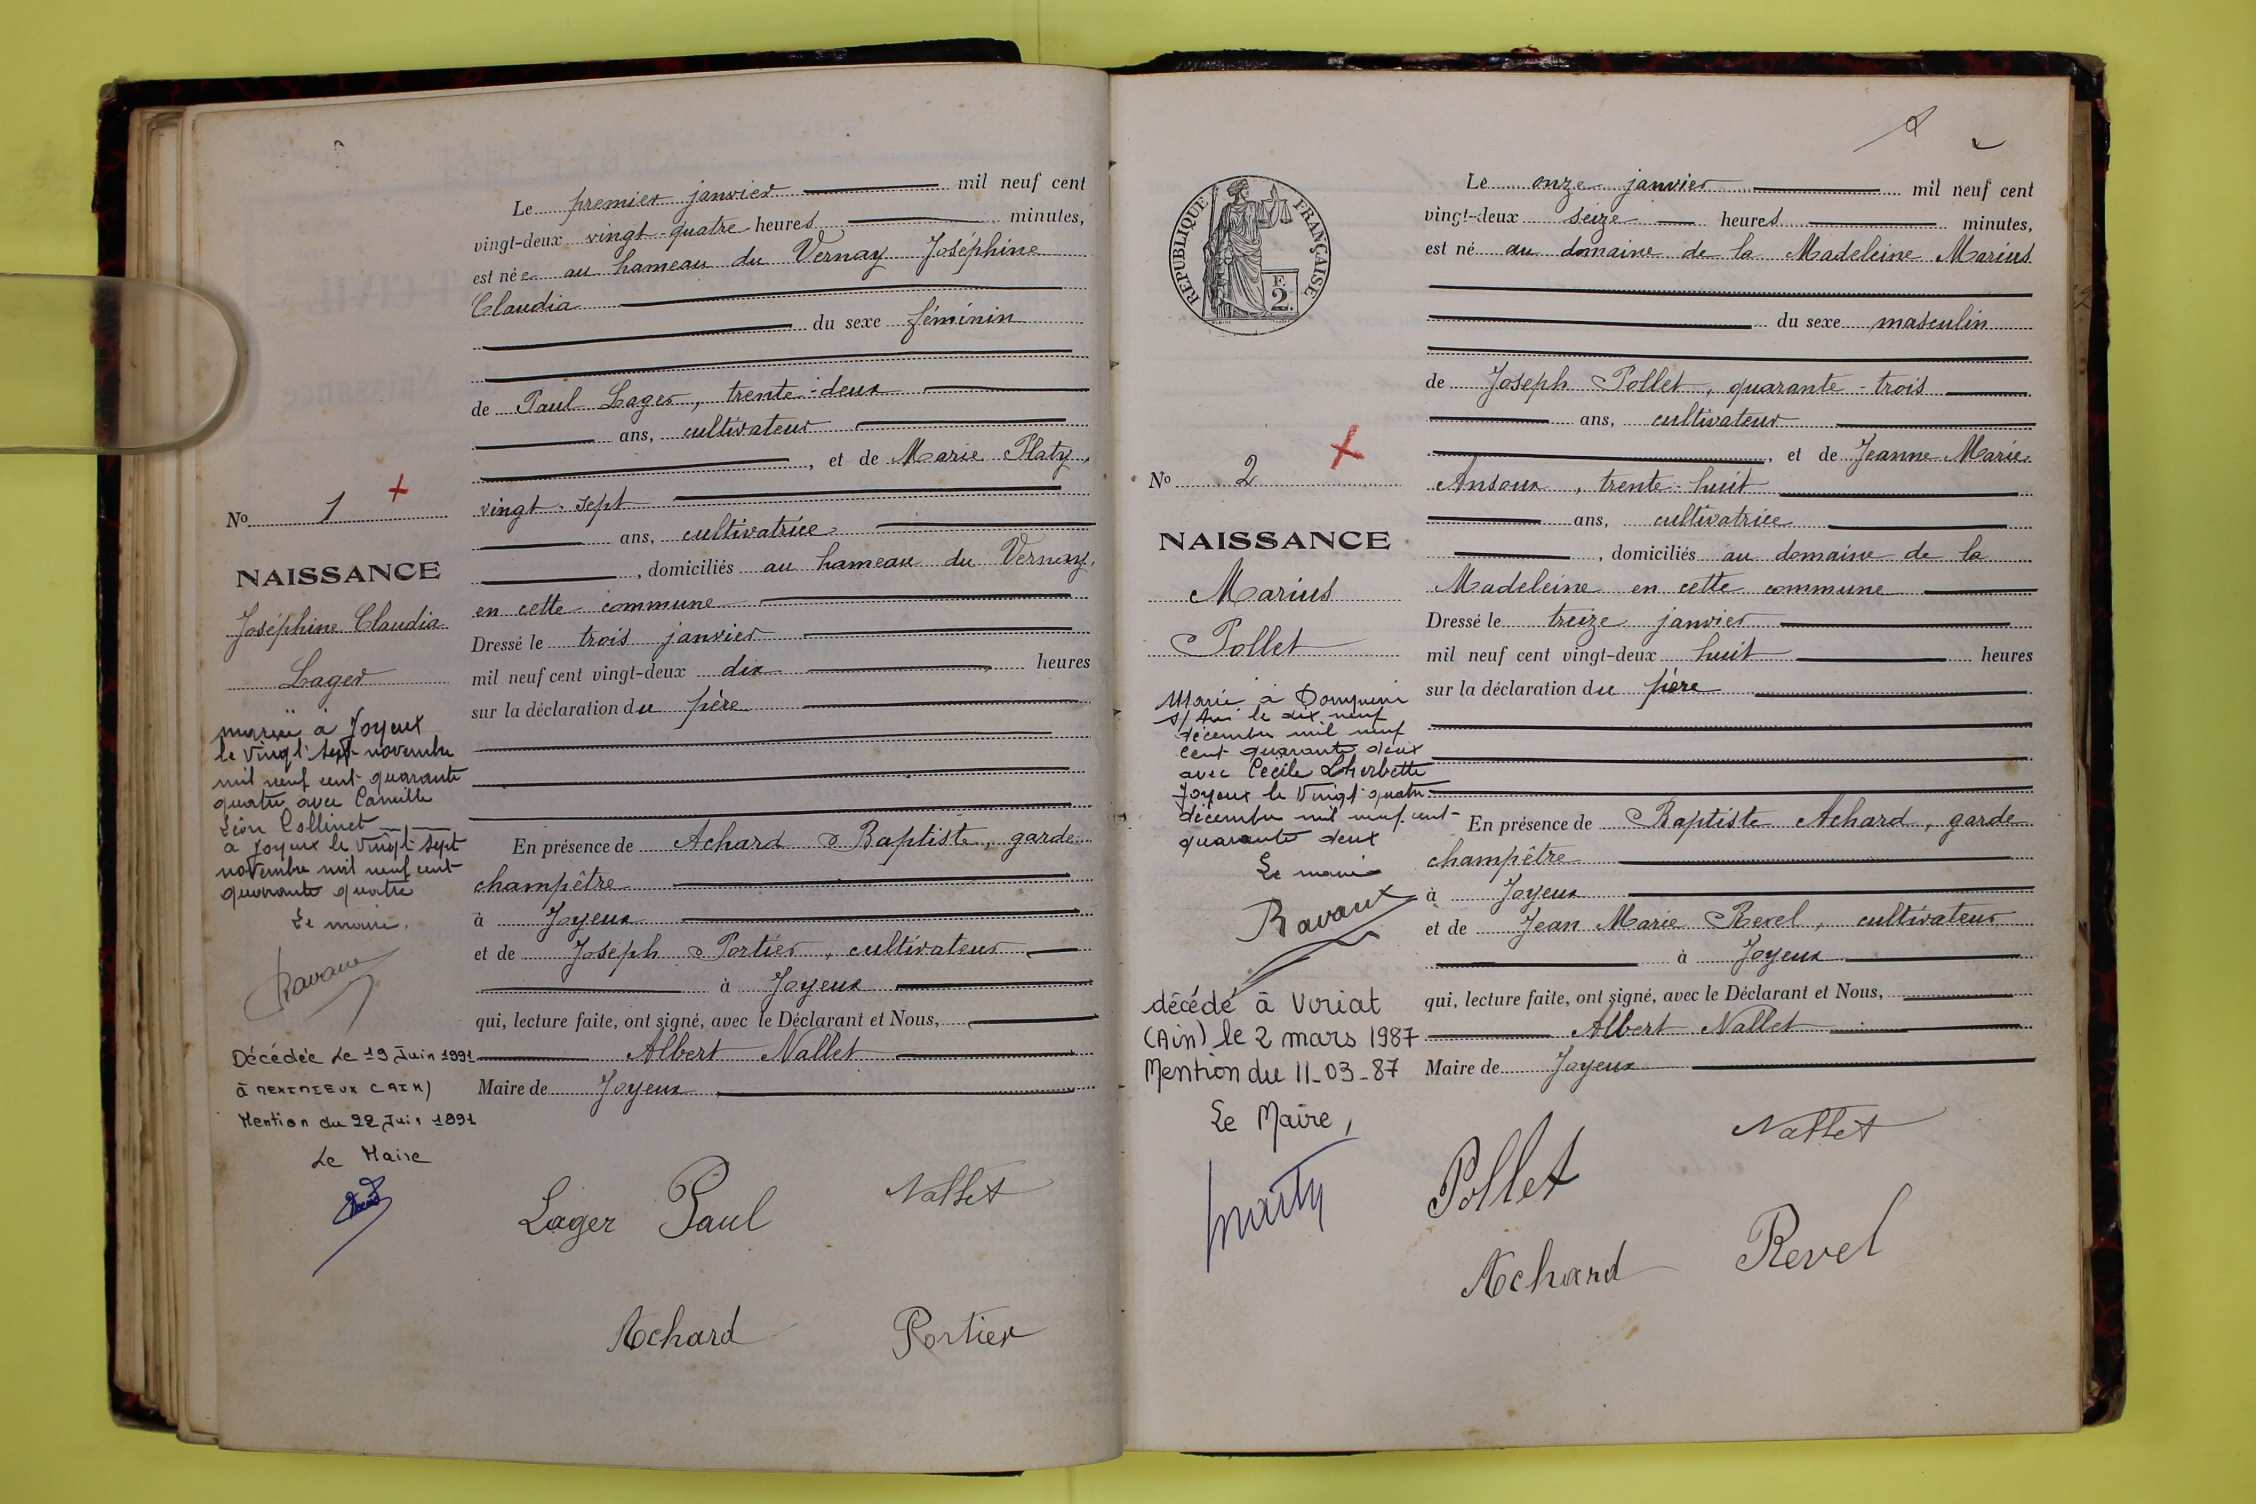 Le premier janvier mil neuf cent
vingt-deux vingt-quatre heures minutes,
est née au hameau du Vernay Joséphine
Claudia
du sexe féminin
de Paul Lager, trente-deux
ans, cultivateur
, et de Marie Platy,
vingt-sept
ans, cultivatrice
, domiciliés au hameau du Vernay,
en cette commune
Dressé le trois janvier
mil neuf cent vingt-deux dix heures
sur la déclaration du père
En présence de Achard Baptiste, garde
champêtre
à Joyeux
et de Joseph Portier, cultivateur
à Joyeux
qui, lecture faite, ont signé, avec le Déclarant et Nous,
Albert Nallet
Maire de Joyeux
Lager Paul Nallet
Achard Portier
No 1
NAISSANCE
Joséphine Claudia
Lager
mariée à Joyeux
le vingt sept novembre
mil neuf cent quarante
quatre avec Camille
Léon Collinet
à Joyeux le vingt sept
novembre mil neuf cent
quarante quatre
Le maire,
Ravaux
Décédée Le 19 Juin 1991
à MEXIMIEUX (AIN)
Mention du 22 Juin 1991
Le Maire
RÉPUBLIQUE FRANÇAISE
F.
2
No 2
NAISSANCE
Marius
Pollet
Marié à Dompierre
s/ Ain le dix neuf
décembre mil neuf
cent quarante deux
avec Cécile Lherbette
Joyeux le vingt quatre
décembre mil neuf cent
quarante deux
Le maire
Ravaux
décédé à Viriat
(Ain) le 2 mars 1987
Mention du 11-03-87
Le Maire,
Le onze janvier mil neuf cent
vingt-deux seize heures minutes,
est né au domaine de la Madeleine Marius
du sexe masculin
de Joseph Pollet, quarante-trois
ans, cultivateur
, et de Jeanne Marie
Ansoux, trente-huit
ans, cultivatrice
, domiciliés au domaine de la
Madeleine en cette commune
Dressé le treize janvier
mil neuf cent vingt-deux huit heures
sur la déclaration du père
En présence de Baptiste Achard, garde
champêtre
à Joyeux
et de Jean Marie Revel, cultivateur
à Joyeux
qui, lecture faite, ont signé, avec le Déclarant et Nous,
Albert Nallet
Maire de Joyeux
Pollet Nallet
Achard Revel